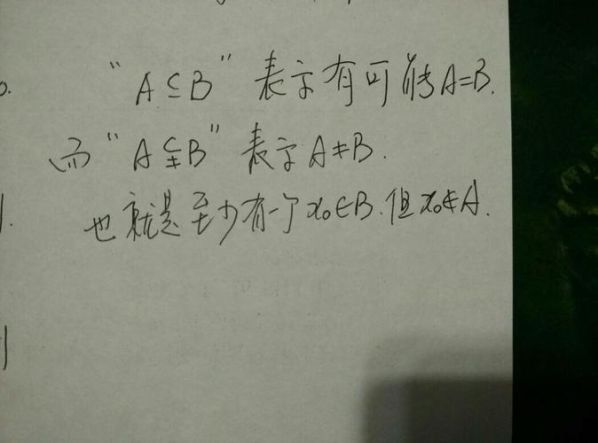 “A⊆B”表示有可能A=B.
而“A⫋B”表示A≠B.
也就是至少有一个x₀∈B.但x₀∉A.